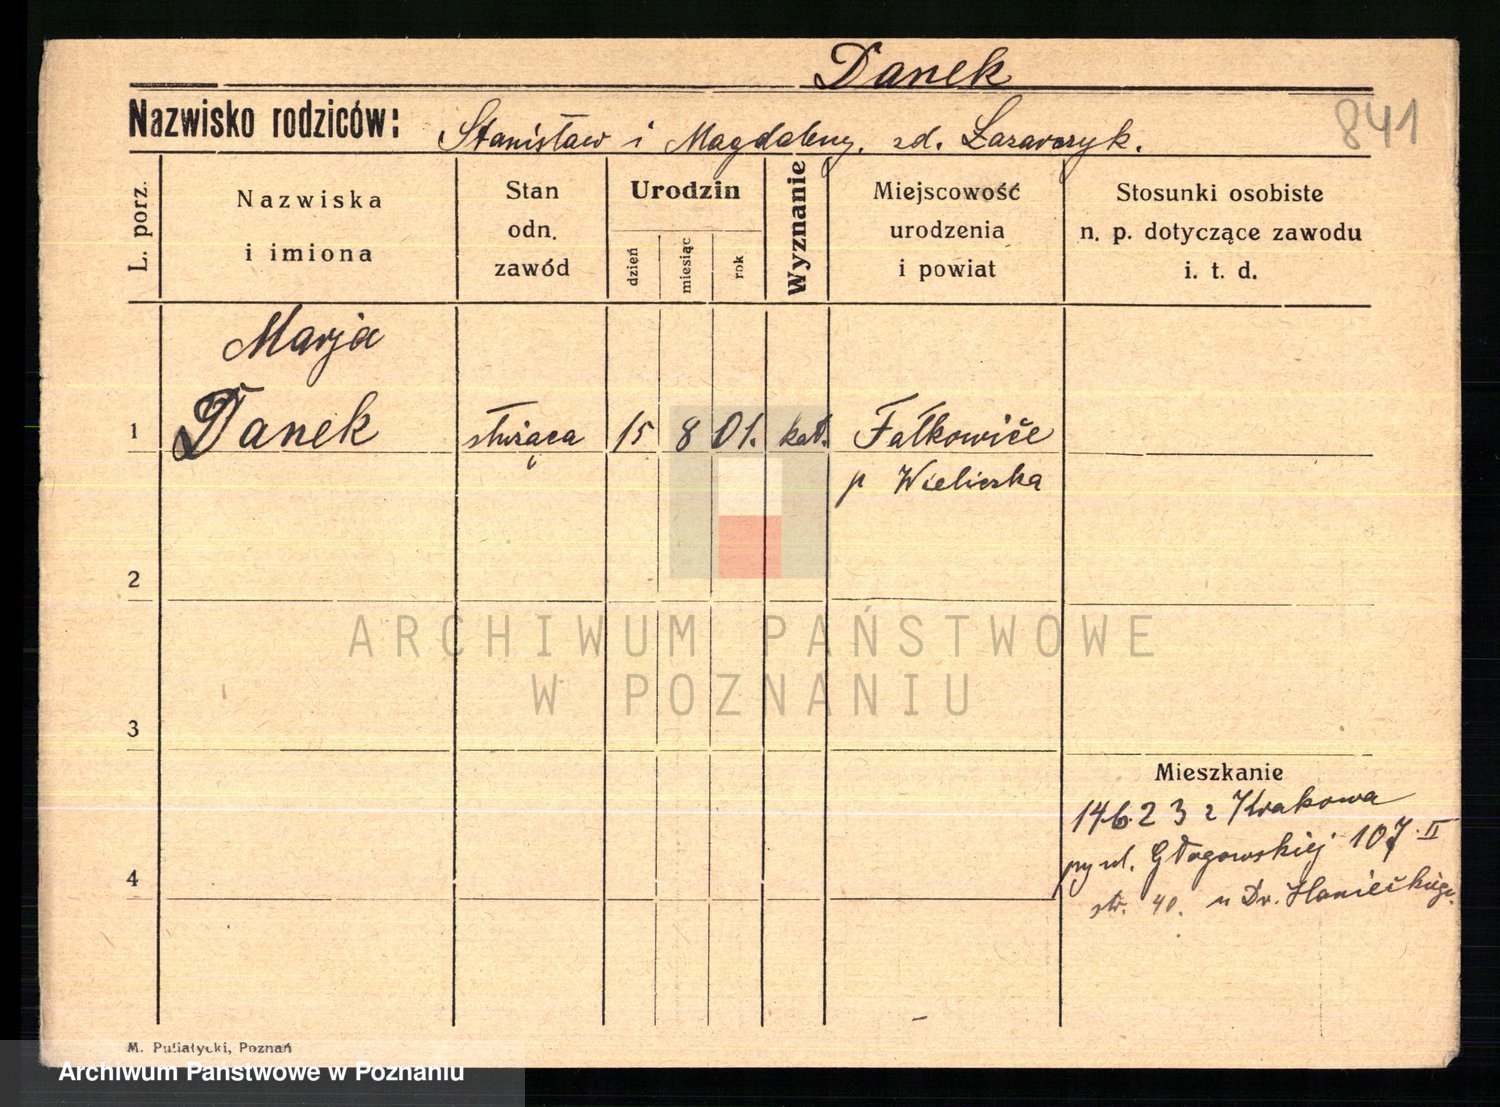 Danek
841
Nazwisko rodziców: Stanisław i Magdaleny. zd. Łazarczyk.
L. porz.
Nazwiska
i imiona
Stan
odn.
zawód
Urodzin
dzień
miesiąc
rok
Wyznanie
Miejscowość
urodzenia
i powiat
Stosunki osobiste
n. p. dotyczące zawodu
i. t. d.
Marja
1 Danek służąca 15 8 01. kat. Fałkowice
p Wieliczka
2
ARCHIWUM PAŃSTWOWE
W POZNANIU
3
Mieszkanie
14623 z Krakowa
ul. Głogowskiej 107 II
4
str. 40. u Dr.
M. Puliatycki, Poznań
Archiwum Państwowe w Poznaniu